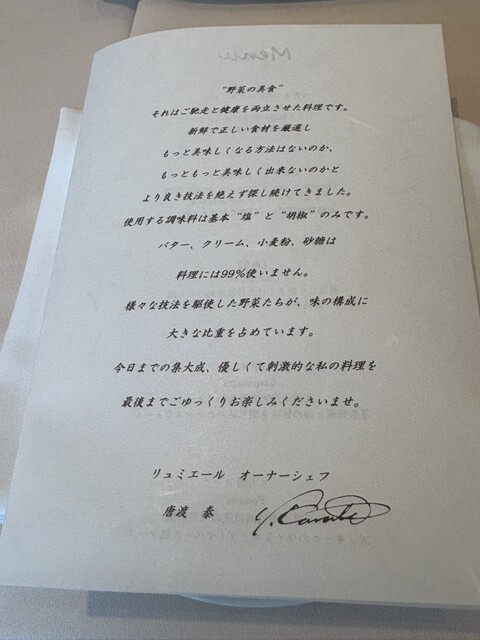 Menu
“野菜の美食”
それはご馳走と健康を両立させた料理です。
新鮮で正しい食材を厳選し
もっと美味しくなる方法はないのか、
もっともっと美味しく出来ないのかと
より良き技法を絶えず探し続けてきました。
使用する調味料は基本“塩”と“胡椒”のみです。
バター、クリーム、小麦粉、砂糖は
料理には99%使いません。
様々な技法を駆使した野菜たちが、味の構成に
大きな比重を占めています。
今日までの集大成、優しくて刺激的な私の料理を
最後までごゆっくりお楽しみくださいませ。
リュミエール オーナーシェフ
唐渡 泰